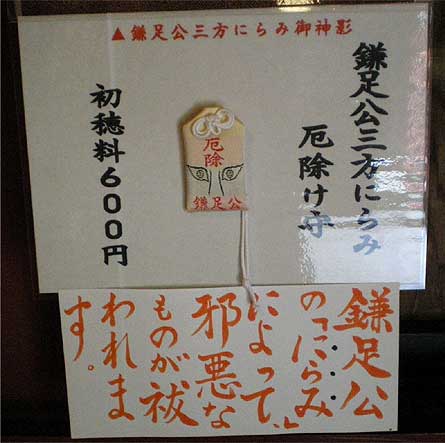 ▲鎌足公三方にらみ御神影
鎌足公三方にらみ
厄除け守
厄除
鎌足公
初穂料600円
鎌足公
の「にらみ」
によって、
邪悪な
ものが祓
われま
す。